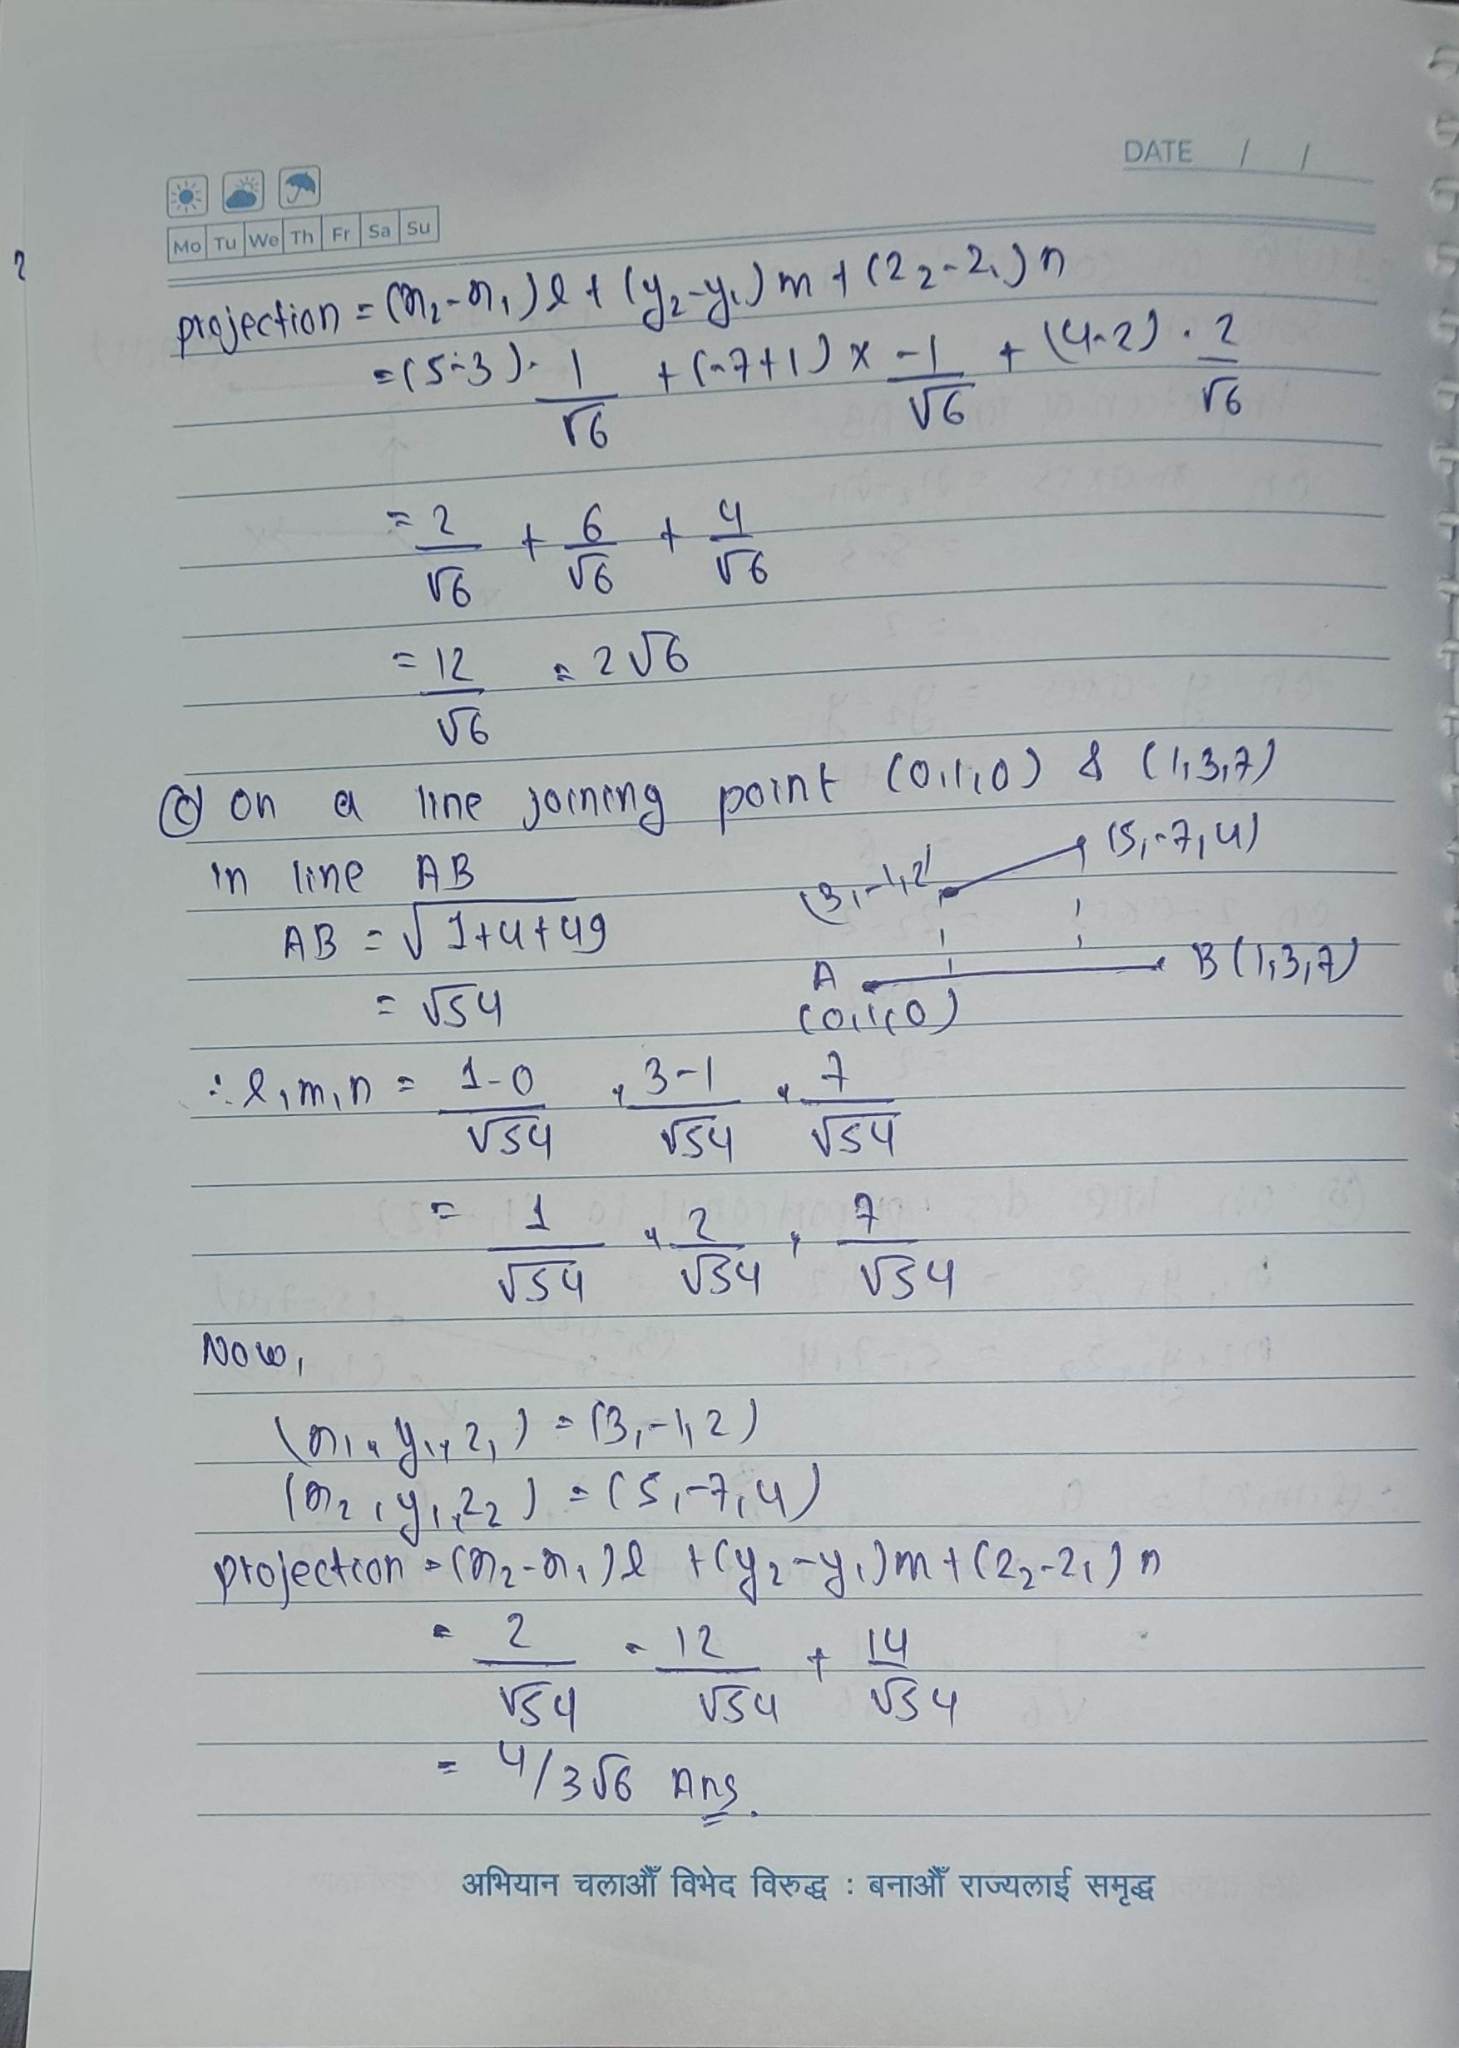 DATE / /
Mo Tu We Th Fr Sa Su
projection = (x₂-x₁)l + (y₂-y₁)m + (z₂-z₁)n
= (5-3)· 1/√6 + (-7+1) x -1/√6 + (4-2) · 2/√6
= 2/√6 + 6/√6 + 4/√6
= 12/√6 = 2√6
(c) on a line joining point (0,1,0) & (1,3,7)
in line AB
(3,-1,2) (5,-7,4)
AB = √1+4+49
A B(1,3,7)
= √54
(0,1,0)
∴ l,m,n = 1-0/√54 , 3-1/√54 , 7/√54
= 1/√54 , 2/√54 , 7/√54
Now,
(x₁,y₁,z₁) = (3,-1,2)
(x₂,y₁,z₂) = (5,-7,4)
projection = (x₂-x₁)l + (y₂-y₁)m + (z₂-z₁)n
= 2/√54 - 12/√54 + 14/√54
= 4/3√6 Ans.
अभियान चलाऔँ विभेद विरुद्ध : बनाऔँ राज्यलाई समृद्ध